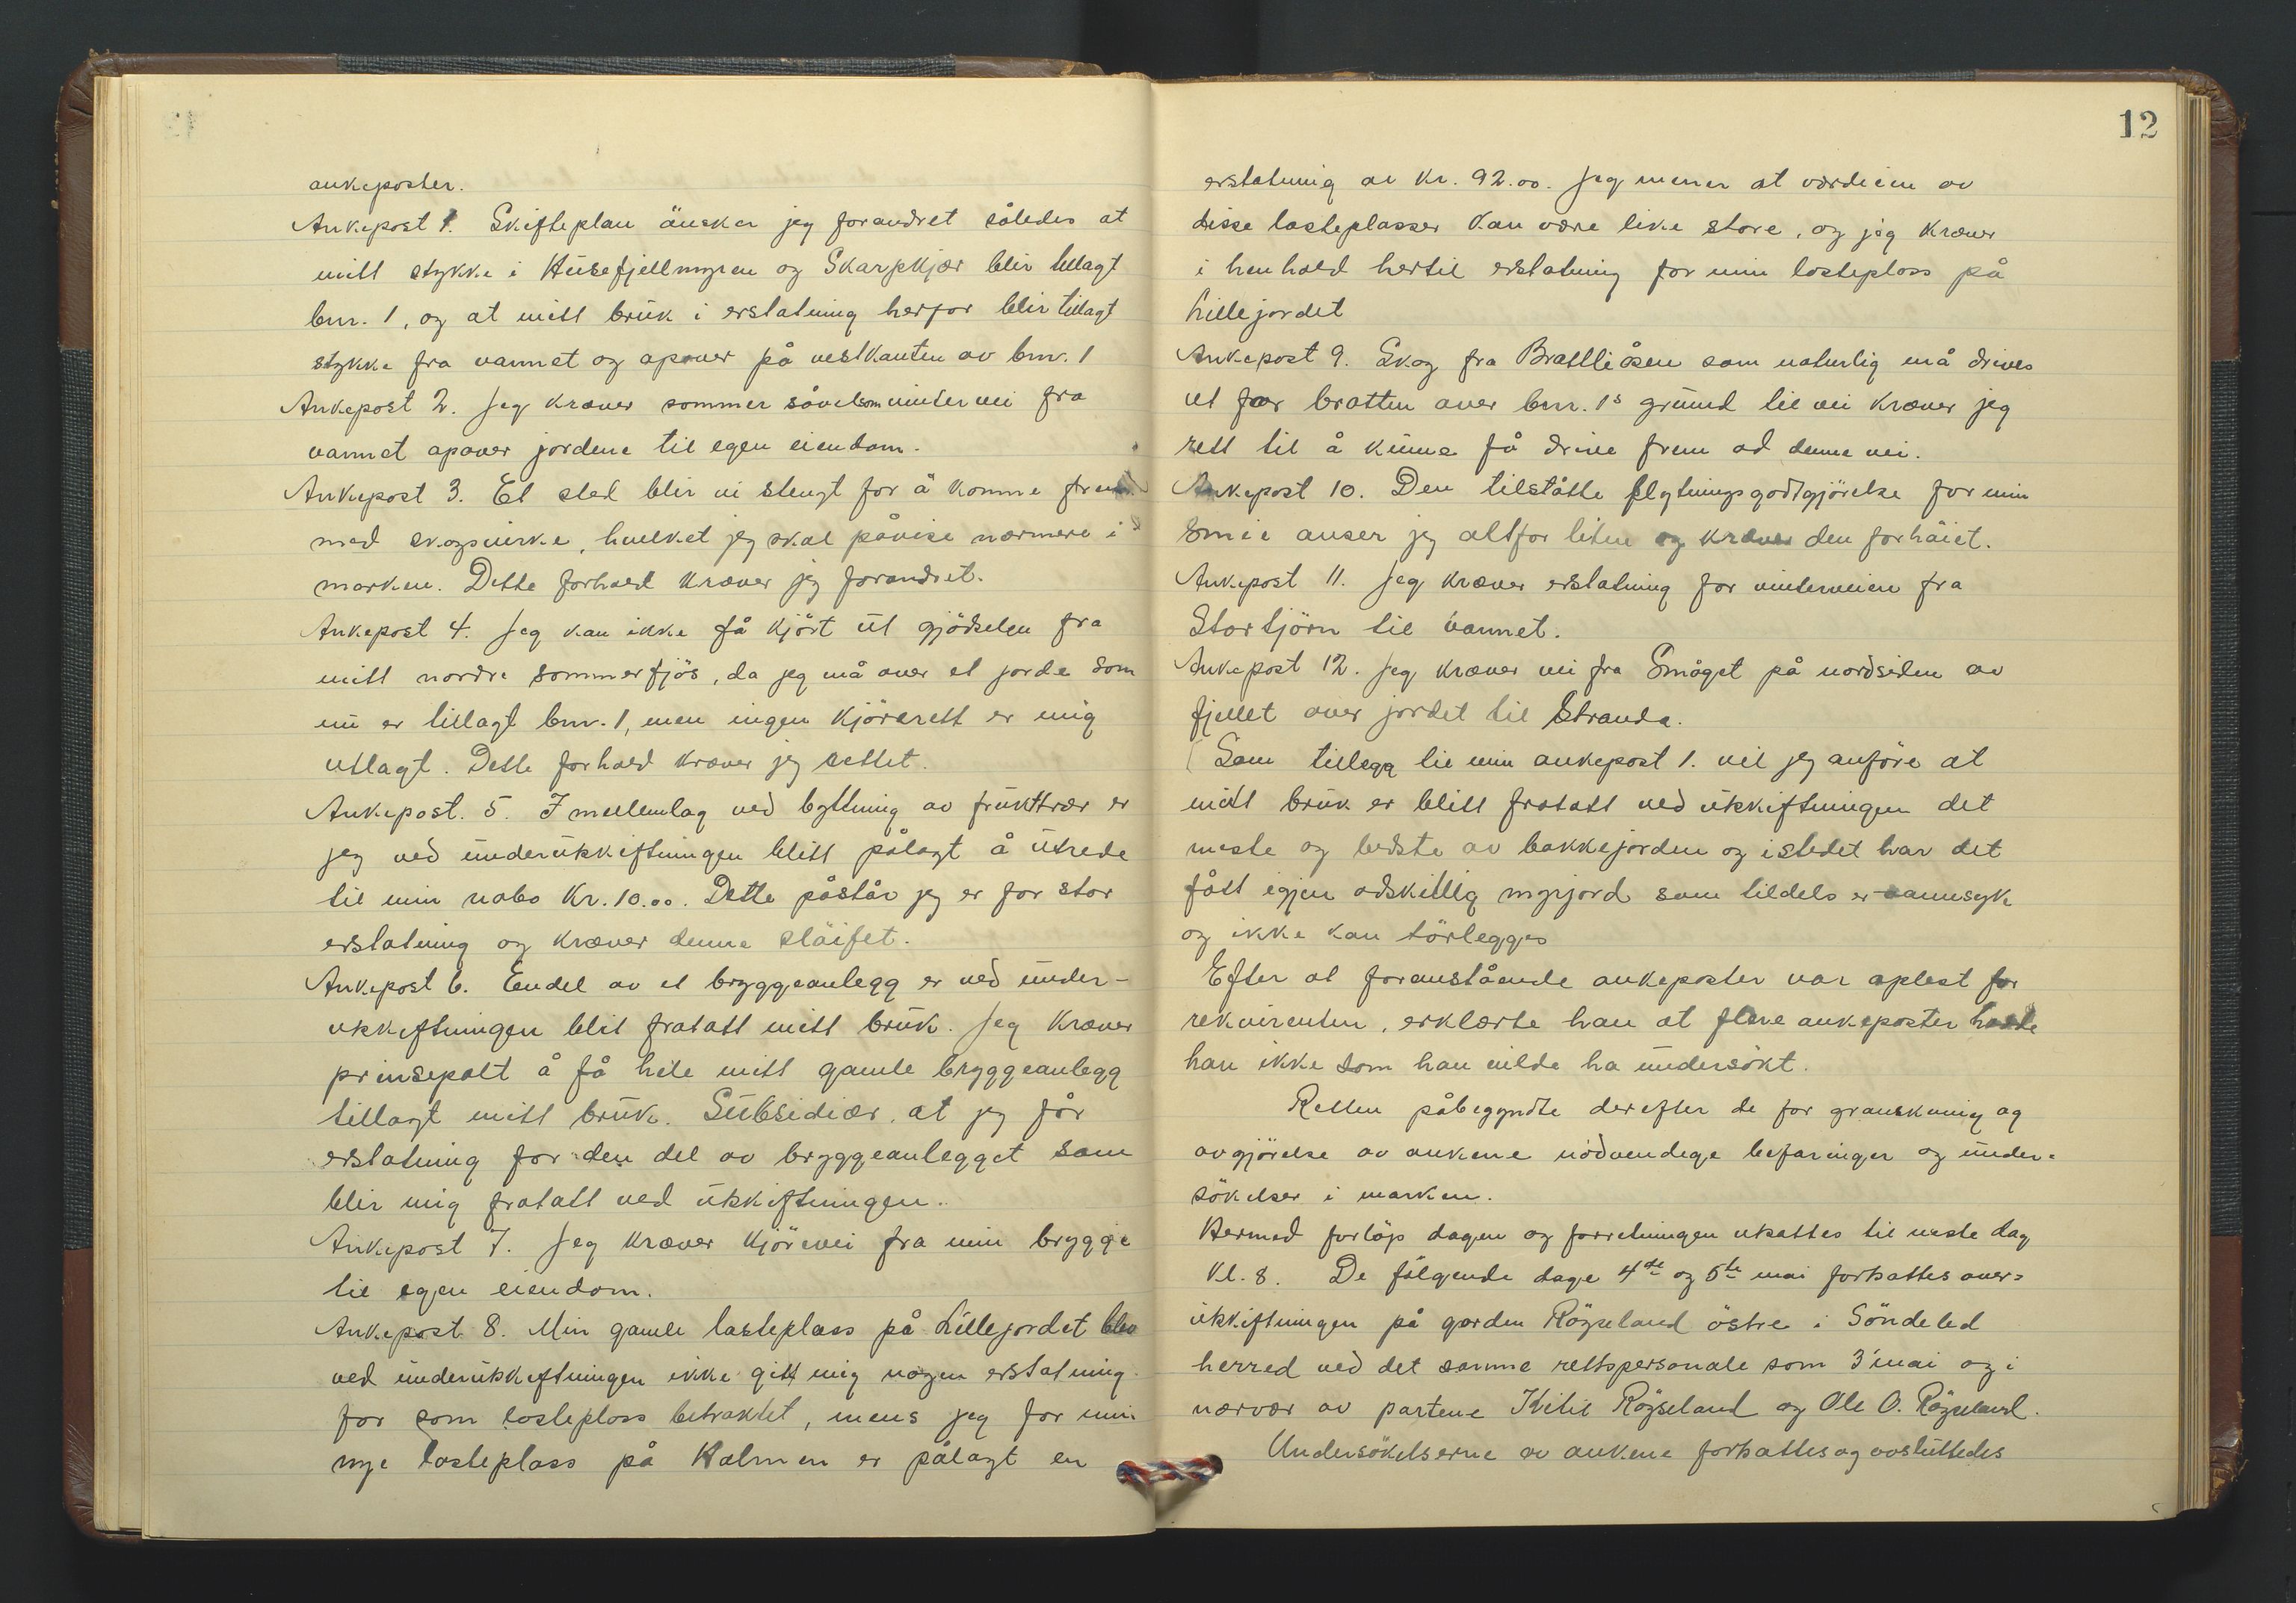 ankeposter.
Ankepost 1. Skifteplan änsker jeg forandret således at
mitt stykke i Husefjellmyren og Skarpkjær blir tillagt
bnr. 1, og at mitt bruk i erstatning herfor blir tillagt
stykke fra vannet og opover på vestkanten av bnr. 1
Ankepost 2. Jeg kræver sommer såvelsom vintervei fra
vannet opover jordene til egen eiendom.
Ankepost 3. Et sted blir vi stengt for å komme frem
med skogsvirke, hvilket jeg skal påvise nærmere i
marken. Dette forhold kræver jeg forandret.
Ankepost 4. Jeg kan ikke få kjört ut gjödselen fra
mitt nordre sommerfjös, da jeg må over et jorde som
nu er tillagt bnr. 1, men ingen kjörerett er mig
utlagt. Dette forhold kræver jeg rettet.
Ankepost. 5. I mellemlag ved byttning av frukttrær er
jeg ved underutskiftningen blitt pålagt å utrede
til min nabo Kr. 10.00. Dette påstår jeg er for stor
erstatning og kræver denne slöifet.
Ankepost 6. Endel av et bryggeanlegg er ved under-
utskiftningen blit fratatt mitt bruk. Jeg kræver
prinsepalt å få hele mitt gamle bryggeanlegg
tillagt mitt bruk. Subsidiær, at jeg får
erstatning for den del av bryggeanlegget som
blir mig fratatt ved utskiftningen.
Ankepost 7. Jeg kræver kjörevei fra min brygge
til egen eiendom.
Ankepost 8. Min gamle lasteplass på Lillejordet blev
ved underutskiftningen ikke gitt mig nogen erstatning
for som lasteplass betraktet, mens jeg for min
nye lasteplass på Holmen er pålagt en
12
erstatning av Kr. 92.00. Jeg mener at værdien av
disse lasteplasser kan være like store, og jeg kræver
i henhold hertil erstatning for min lasteplass på
Lillejordet
Ankepost 9. Skog fra Brattliåsen som naturlig må drives
ut for bratten over bnr. 1s grunn til vei kræver jeg
rett til å kunne få drive frem ad denne vei.
Ankepost 10. Den tilståtte flytningsgodtgjörelse for min
smie anser jeg altfor liten og kræver den forhöiet.
Ankepost 11. Jeg kræver erstatning for vinterveien fra
Stortjörn til vannet.
Ankepost 12. Jeg kræver vei fra Smöget på nordsiden av
fjellet over jordet til Stranda.
(Som tillegg til min ankepost 1. vil jeg anföre at
mitt bruk er blitt fratatt ved utskiftningen det
meste og bedste av bakkejorden og istedet har det
fått igjen adskillig myrjord som tildels er vannsyk
og ikke kan törlegges
Efter at foranstående ankeposter var oplest for
rekvirenten, erklærte han at flere ankeposter hadde
han ikke som han vilde ha undersökt.
Retten påbegyndte derefter de for granskning og
avgjörelse av ankene nödvendige befaringer og under-
sökelser i marken.
Hermed forlöp dagen og forretningen utsattes til næste dag
kl. 8. De fölgende dage 4de og 5te mai fortsattes over-
utskiftningen på gården Röyseland östre i Söndeled
herred ved det samme rettspersonale som 3' mai og i
nærvær av partene Kitil Röyseland og Ole O. Röyseland.
Undersökelserne av ankene fortsattes og avsluttedes